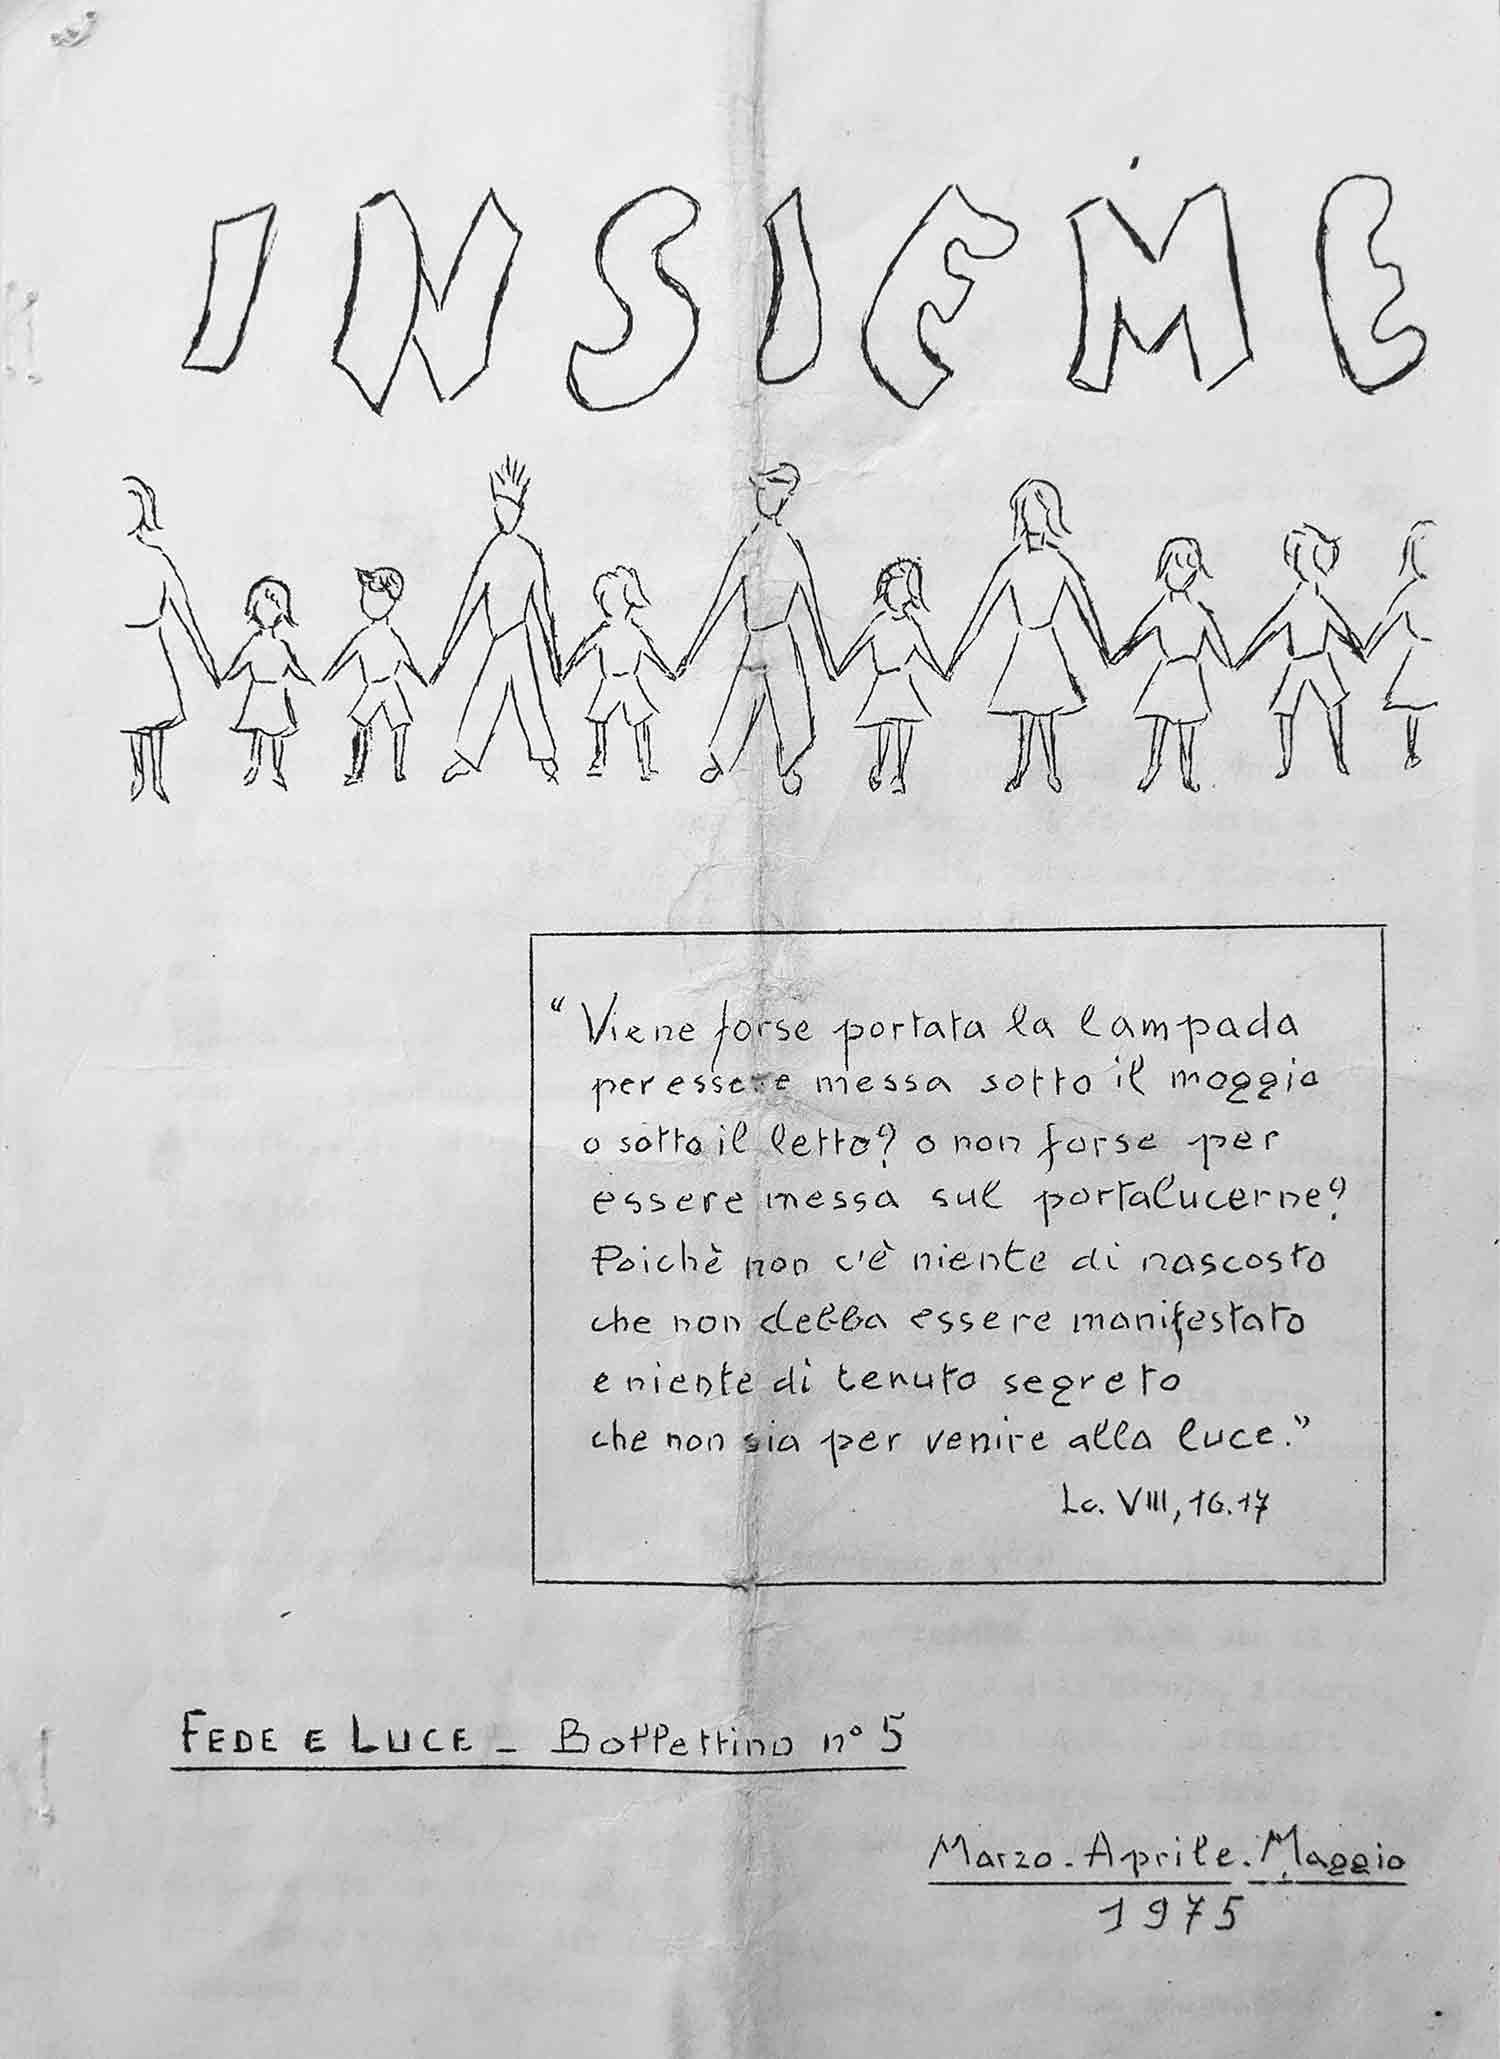 INSIEME
"Viene forse portata la lampada
per essere messa sotto il moggio
o sotto il letto? o non forse per
essere messa sul portalucerne?
Poichè non c'è niente di nascosto
che non debba essere manifestato
e niente di tenuto segreto
che non sia per venire alla luce."
Lc. VIII, 16.17
FEDE E LUCE - Bollettino n° 5
Marzo. Aprile. Maggio
1975